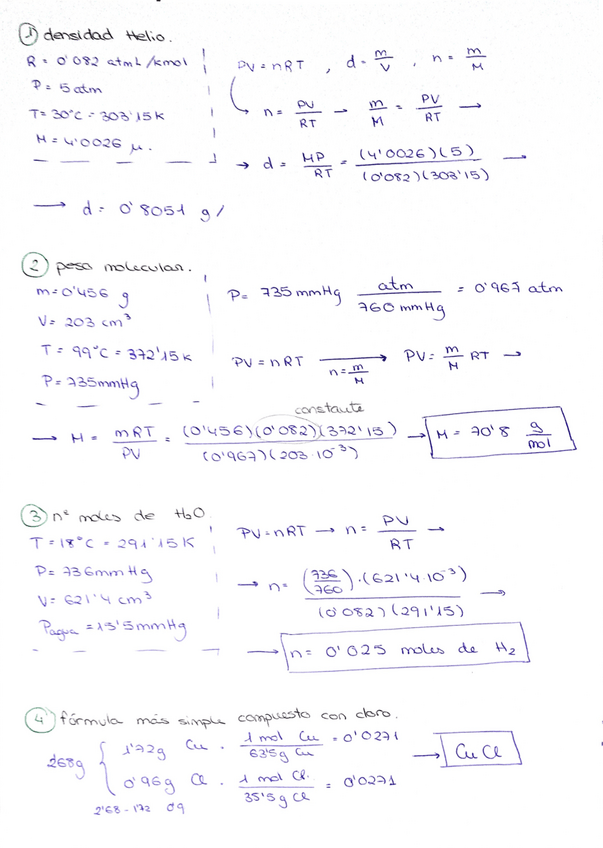 1) densidad Helio.
R = 0'082 atmL/kmol
P = 5 atm
T = 30°C = 303'15 K
M = 4'0026 μ.
PV = nRT , d = m/V , n = m/M
n = PV/RT → m/M = PV/RT →
→ d = MP/RT = (4'0026)(5)/(0'082)(303'15) →
→ d = 0'8051 g/
2) peso molecular.
m = 0'456 g
V = 203 cm³
T = 99°C = 372'15 K
P = 735 mmHg
P = 735 mmHg atm/760 mmHg = 0'967 atm
PV = nRT → n = m/M PV = m/M RT →
constante
→ M = mRT/PV = (0'456)(0'082)(372'15)/(0'967)(203·10⁻³) → M = 70'8 g/mol
3) nº moles de H₂O.
T = 18°C = 291'15 K
P = 736 mmHg
V = 621'4 cm³
Pagua = 15'5 mmHg
PV = nRT → n = PV/RT →
→ n = (736/760)·(621'4·10⁻³)/(0'082)(291'15) →
→ n = 0'025 moles de H₂
4) fórmula más simple compuesto con cloro.
2'68g { 1'72g Cu · 1 mol Cu/63'5g Cu = 0'0271
0'96g Cl · 1 mol Cl/35'5g Cl = 0'0271
→ CuCl
2'68-1'72